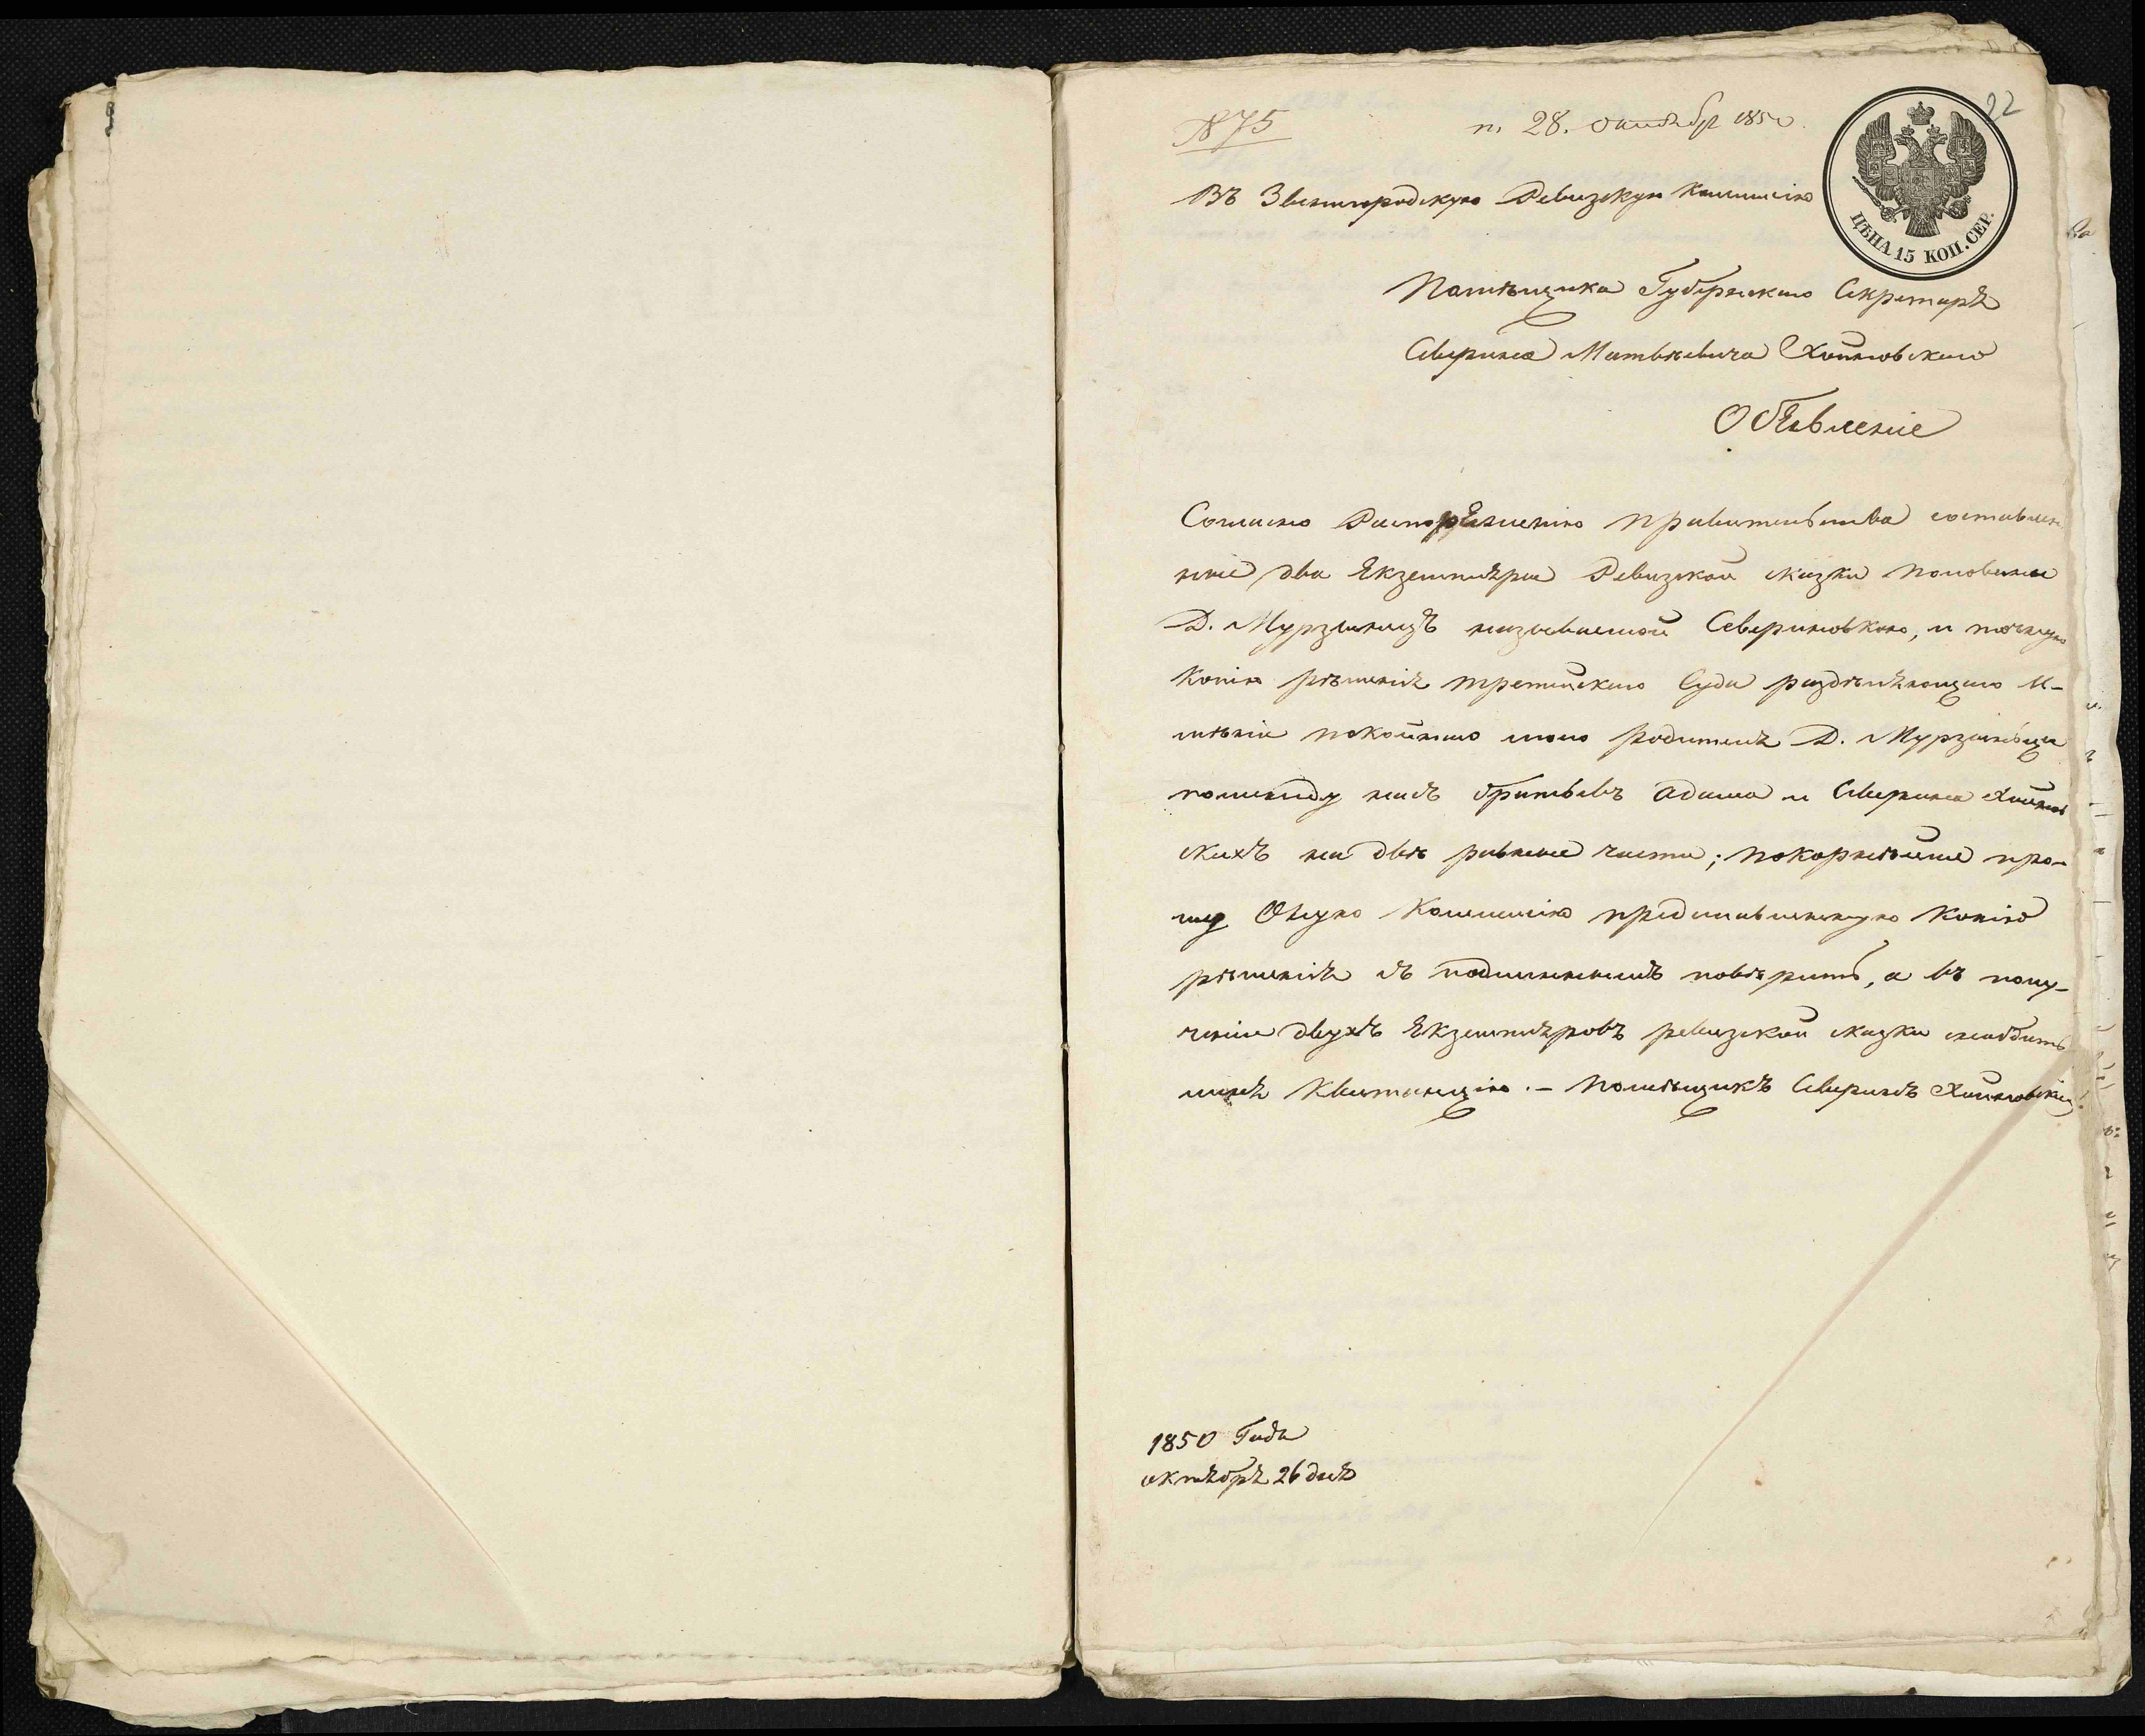 № 75
п. 28. октября 1850.
22
ЦѢНА 15 КОП. СЕР.
Въ Звенигородскую Ревизкую Комисiю
Помѣщика Губернскаго Секретаря
Северина Матвѣевича Хойновскаго
Объявленiе
Согласно Распоряженiю правительства составлен
ніе два Екземпляра Ревизкой сказки половины
Д. Мурзинецъ называемой Севериновкою, и точную
Копiю рѣшенiя третейскаго Суда раздѣляющаго И-
мѣнiе покойнаго моего родителя Д. Мурзинцы
помежду насъ братьевъ Адама и Северина Хойнов
скихъ на двѣ равные части; покорнѣйше про-
шу Оную Коммисiю представленную Копiю
рѣшенiя съ подлиннымъ повѣрить, а въ полу-
ченiи двухъ Екземпляровъ ревизской сказки снабдить
меня Квитанцiю. – Помѣщикъ Северинъ Хойновскiй
1850 Года
октября 26 дня